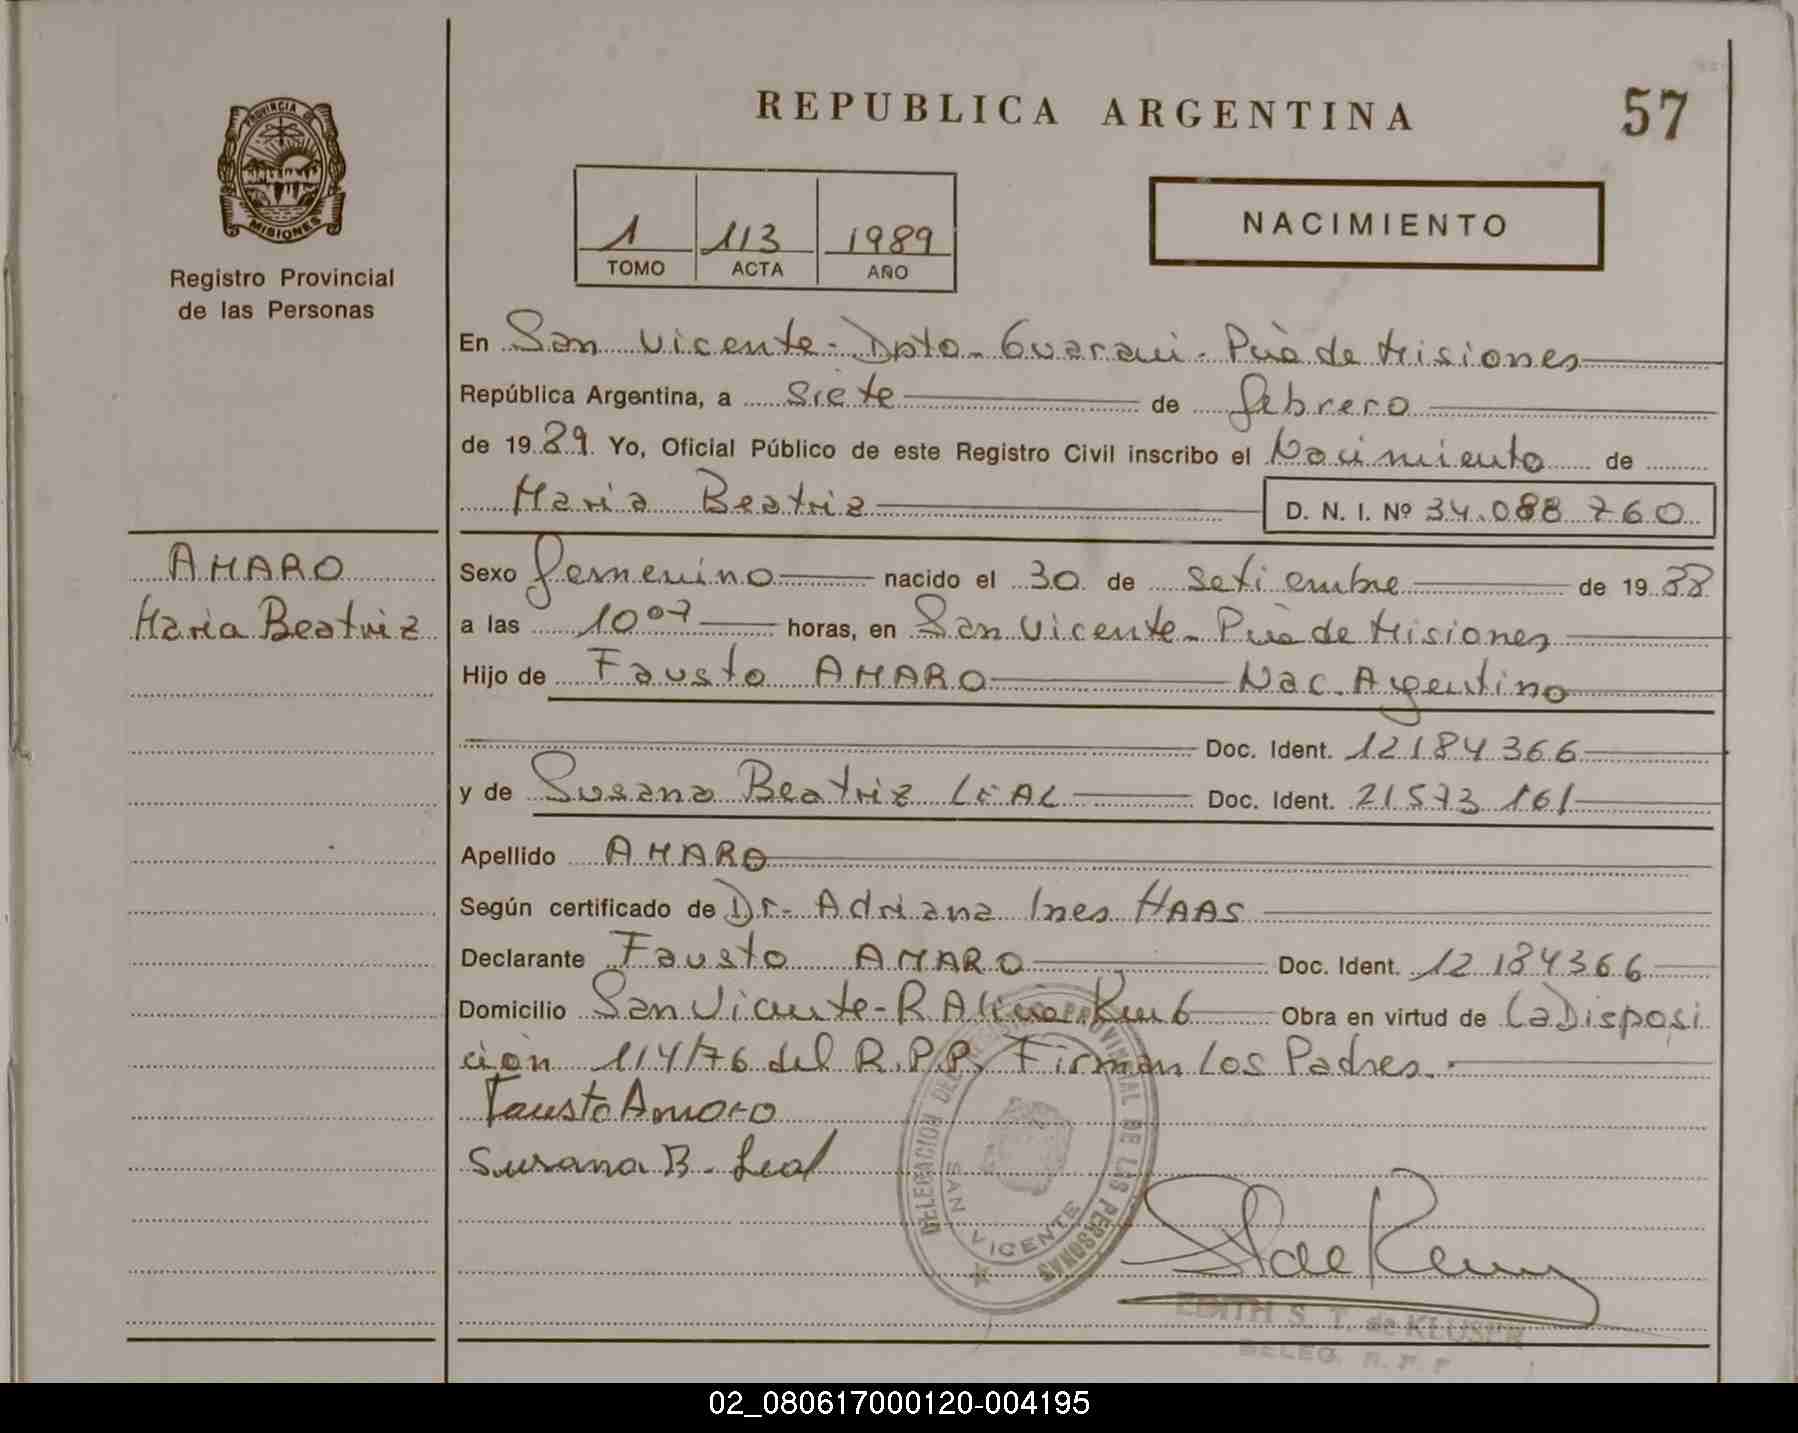 PROVINCIA DE
MISIONES
Registro Provincial
de las Personas
REPUBLICA ARGENTINA
57
1 113 1989
TOMO ACTA AÑO
NACIMIENTO
En San Vicente - Dpto - Guarani - Pcia de Misiones
República Argentina, a siete de febrero
de 1989. Yo, Oficial Público de este Registro Civil inscribo el Nacimiento de
Maria Beatriz D. N. I. Nº 34.088 760
AMARO
Maria Beatriz
Sexo femenino nacido el 30 de setiembre de 1988
a las 10 07 horas, en San Vicente - Pcia de Misiones
Hijo de Fausto AMARO Nac. Argentino
Doc. Ident. 12184366
y de Susana Beatriz LEAL Doc. Ident. 21573161
Apellido AMARO
Según certificado de Dr. Adriana Ines HAAS
Declarante Fausto AMARO Doc. Ident. 12184366
Domicilio San Vicente - R Alicia Km 6 Obra en virtud de La Disposi
ción 114/76 del R.P.P. Firman Los Padres.-
Fausto Amaro
Susana B. Leal
DELEGACION DEL PROVINCIAL DE LAS PERSONAS
SAN VICENTE
EDITH S. T. de KLUSER
DELEG. R. P. P
02_080617000120-004195